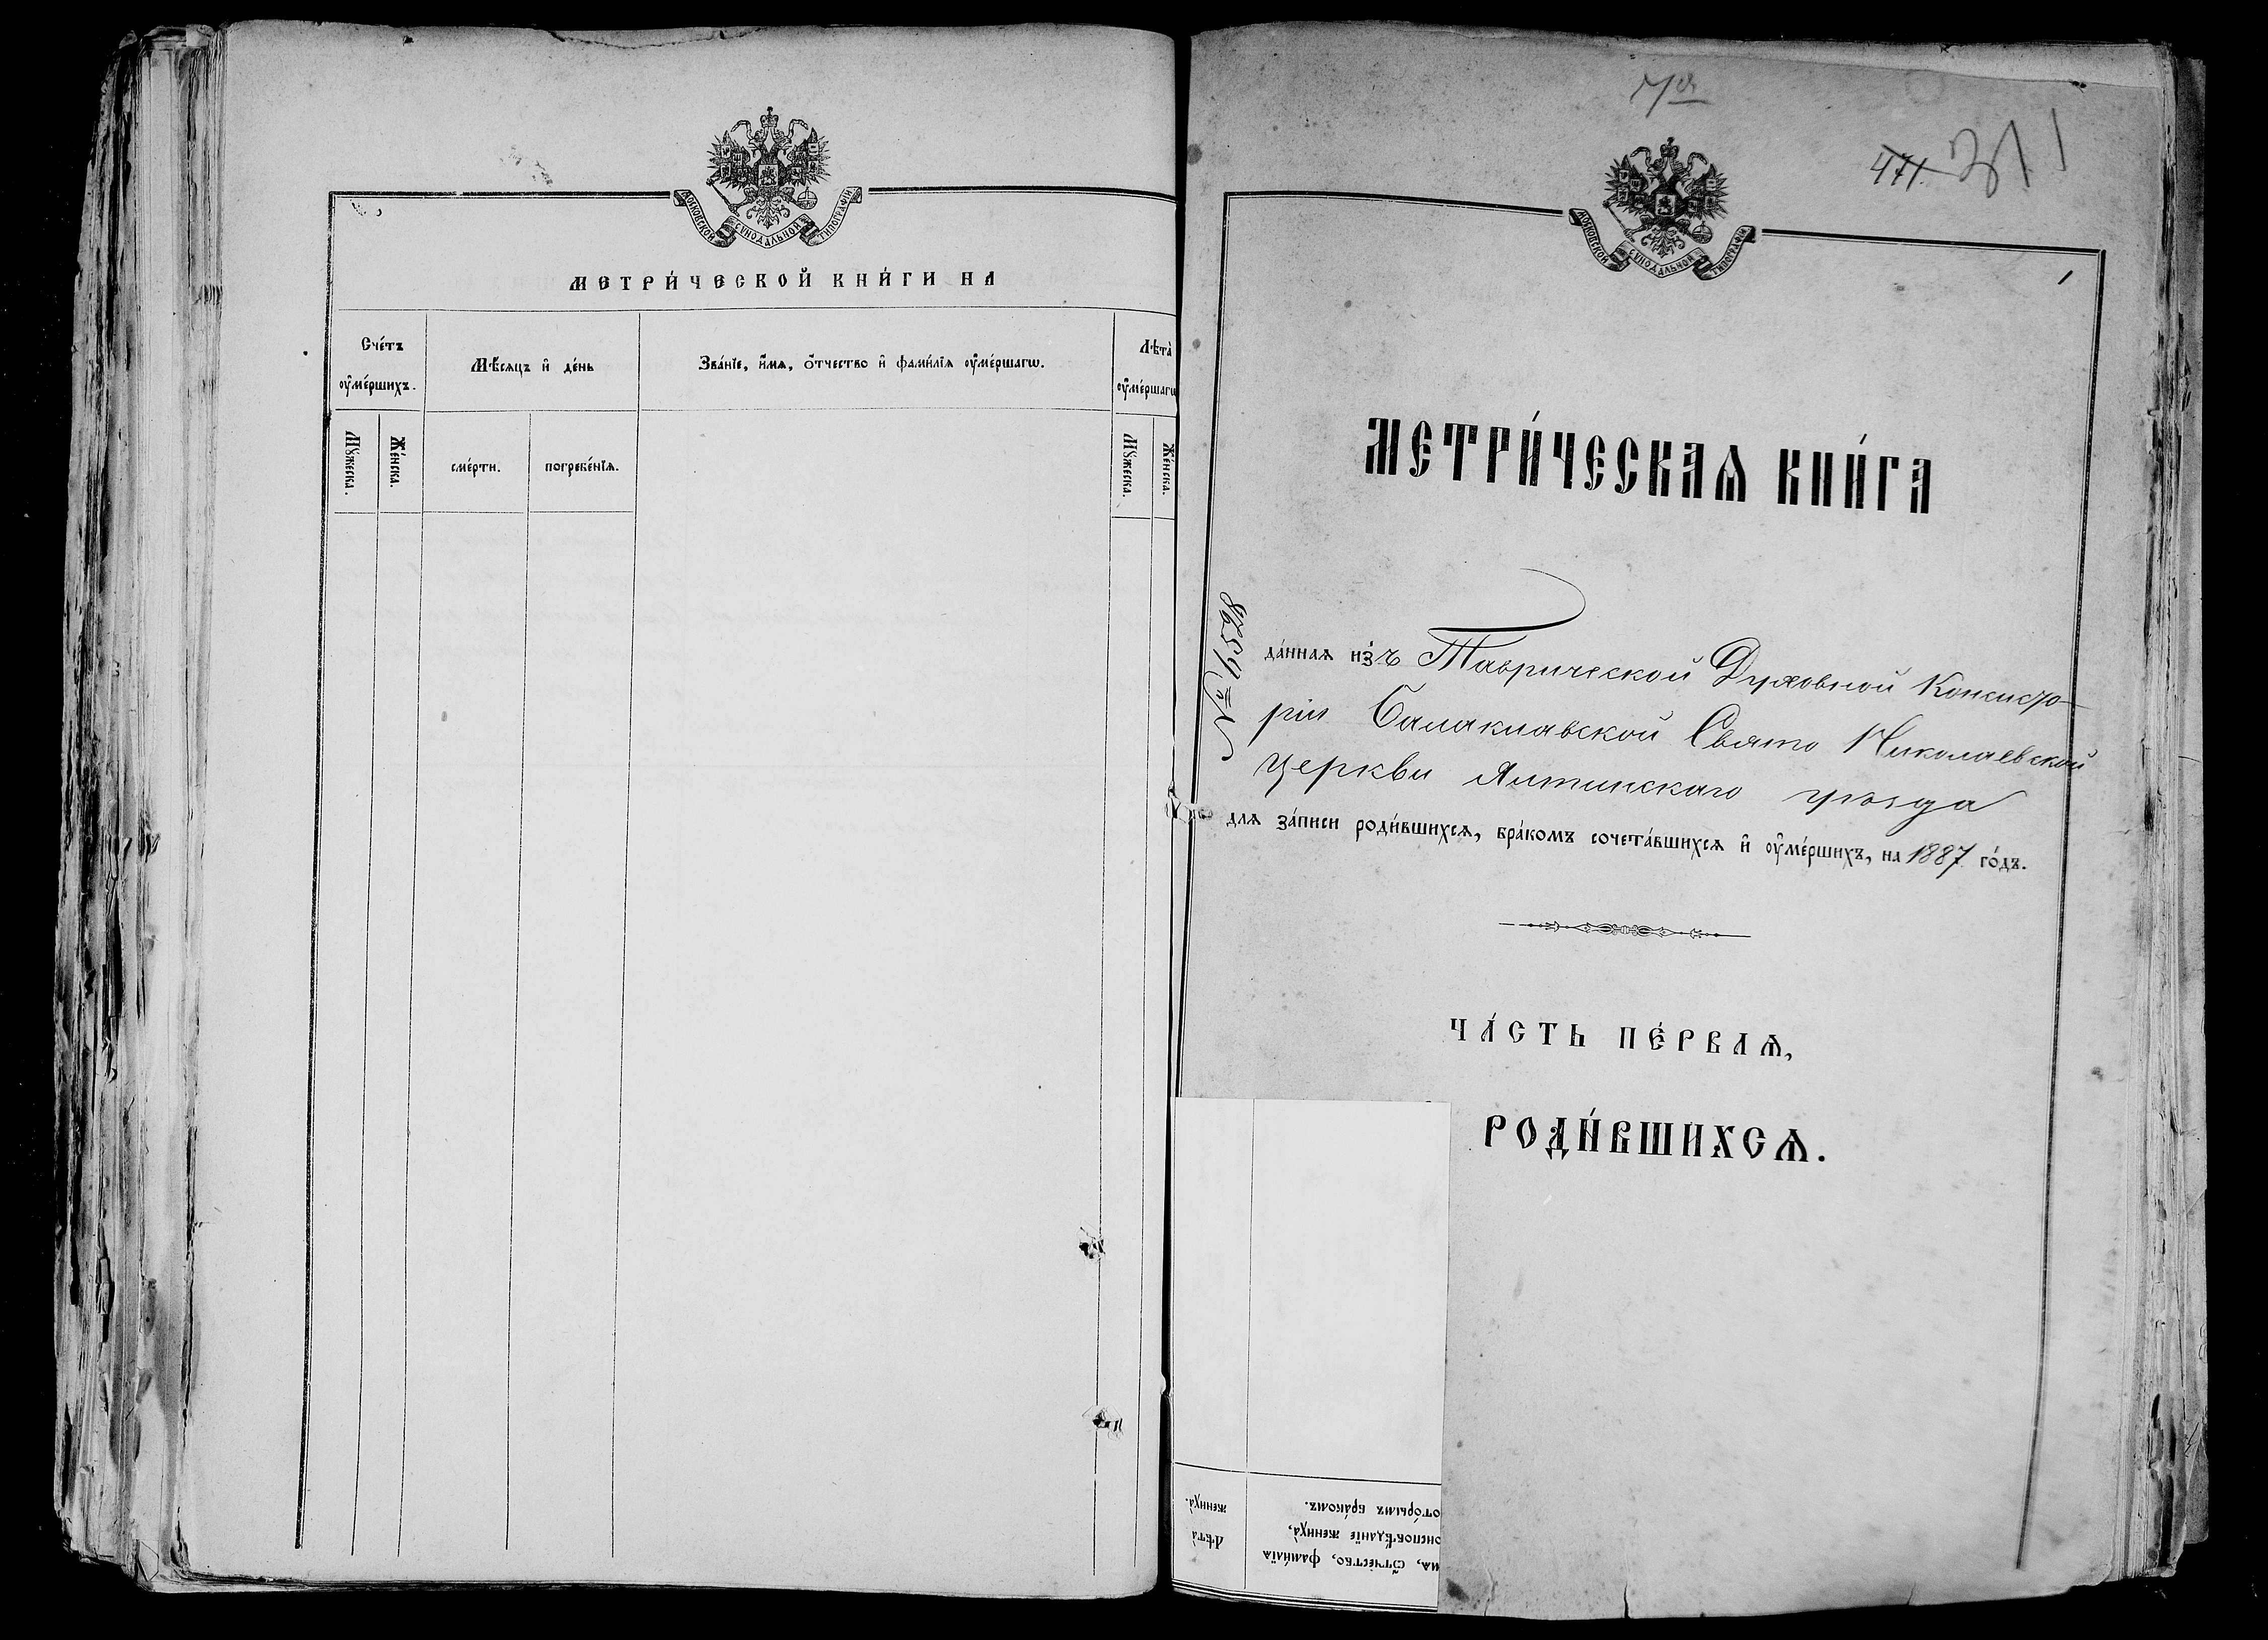 МОСКОВСКОЙ СѴНОДАЛЬНОЙ ТИПОГРАФІИ
МЕТРИ́ЧЕСКОЙ КНИ́ГИ НА
Сче́тъ оу҆ме́ршихъ.
Мѣ́сяцъ и҆ де́нь
Зва́нїе, и҆́мѧ, ѻ҆́тчество и҆ фами́лїѧ оу҆ме́ршагѡ.
Лѣта̀ оу҆ме́ршагѡ
Мꙋ́жеска.
Же́нска.
сме́рти.
погребе́нїѧ.
Мꙋ́жеска.
Же́нска.
471. 311
МОСКОВСКОЙ СѴНОДАЛЬНОЙ ТИПОГРАФІИ
1
МЕТРИ́ЧЕСКАѦ КНИ́ГА
да́нная изъ Таврической Духовной Консисто-
ріи Балаклавской Свято Николаевской
церкви Ялтинскаго уѣзда
для за́писи роди́вшихсѧ, бра́комъ сочета́вшихсѧ и҆ оу҆ме́ршихъ, на 1887 го́дъ.
ЧА́СТЬ ПЕ́РВАѦ,
РОДИ́ВШИХСѦ.
мѧ, ѻ҆́тчество, фами́лїѧ
онсповѣ́данїе жениха̀,
ото́рымъ бра́комъ.
Лѣта̀
жениха̀.